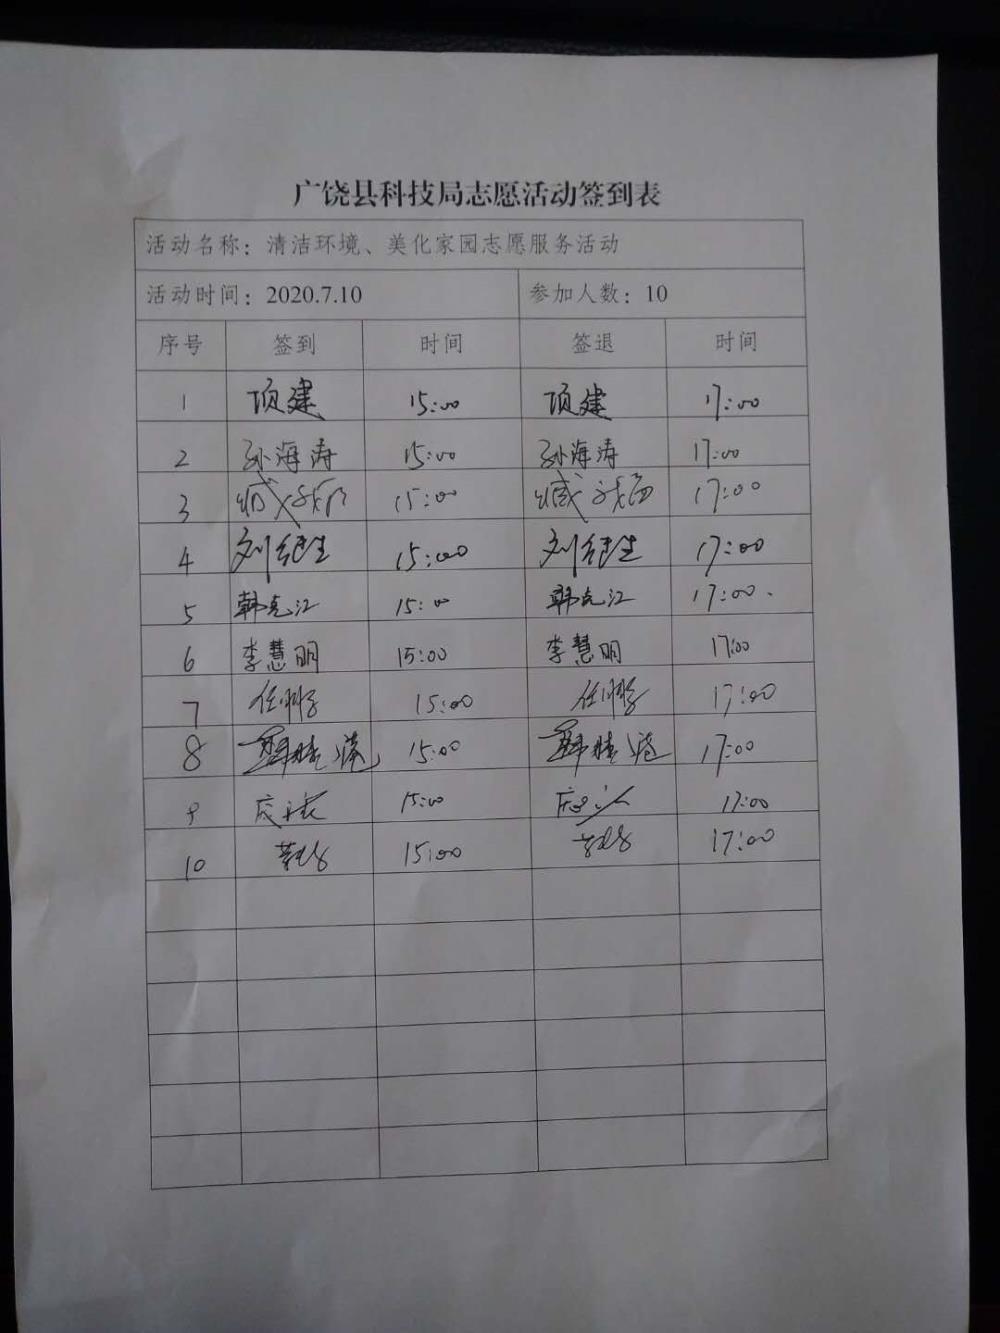 广饶县科技局志愿活动签到表
活动名称：清洁环境、美化家园志愿服务活动
活动时间：2020.7.10 参加人数：10
序号 签到 时间 签退 时间
1 项建 15:00 项建 17:00
2 孙海涛 15:00 孙海涛 17:00
3 15:00 17:00
4 刘继生 15:00 刘继生 17:00
5 韩克江 15:00 韩克江 17:00
6 李慧明 15:00 李慧明 17:00
7 15:00 17:00
8 15:00 17:00
9 15:00 17:00
10 15:00 17:00